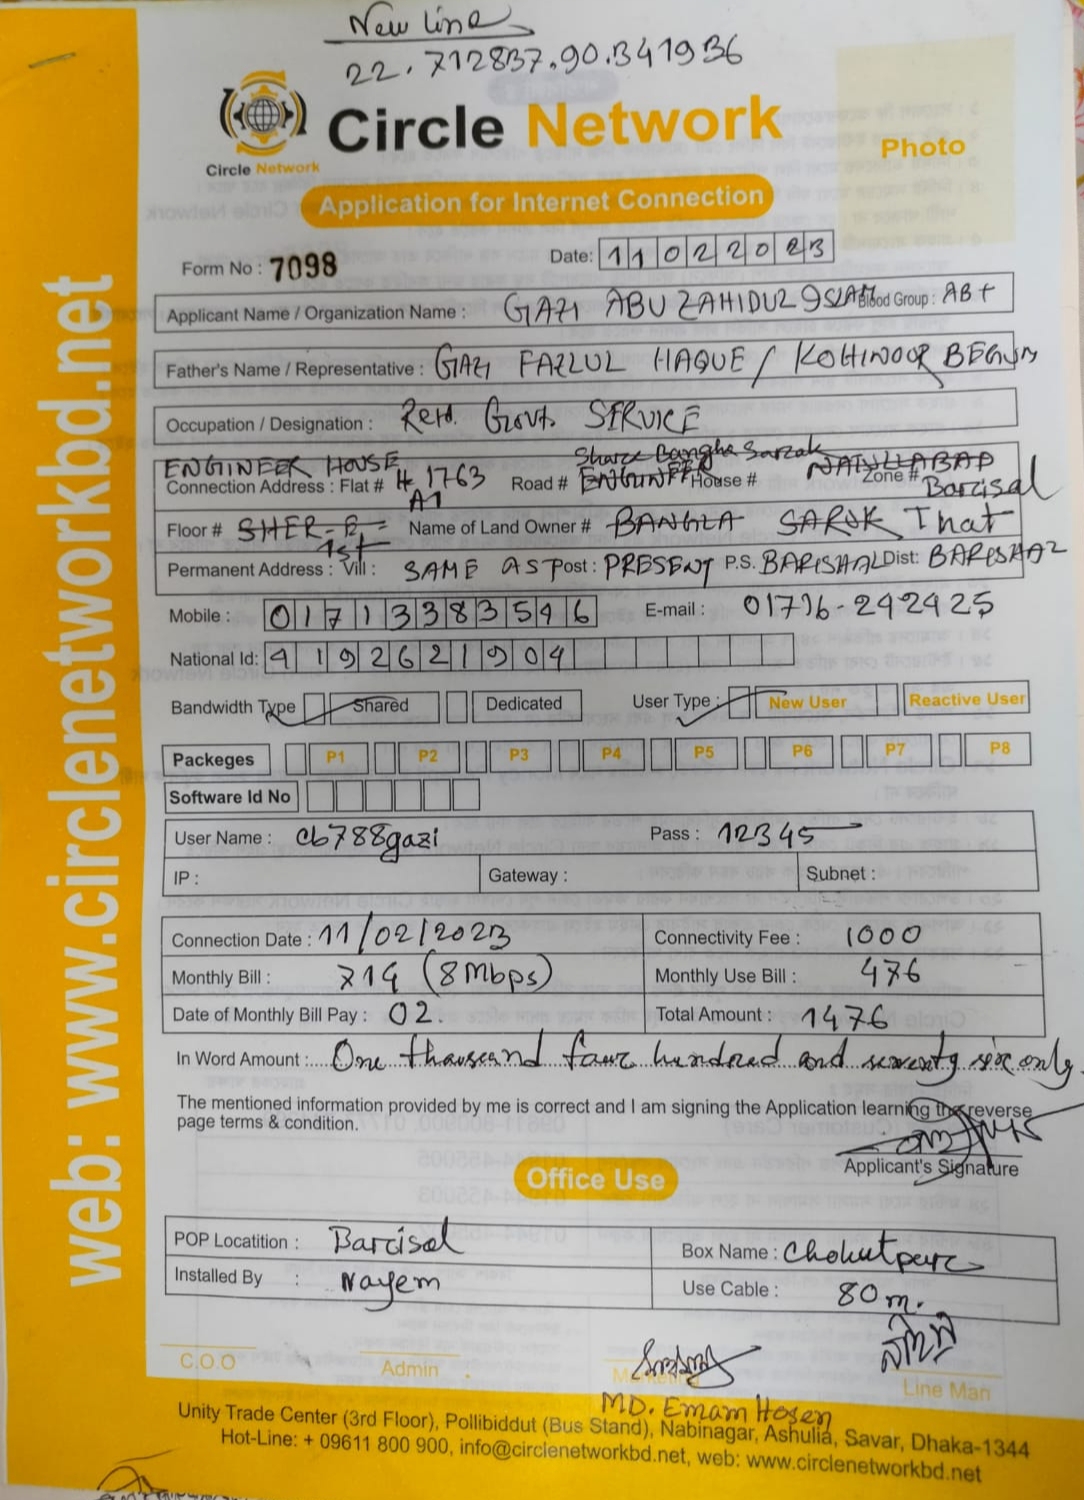 New Line
22.712837.90.341936
Circle Network
Circle Network
Photo
Application for Internet Connection
Form No : 7098
Date: 11022023
Applicant Name / Organization Name : GAZI ABU ZAHIDUZ ISLAM Blood Group : AB+
Father's Name / Representative : GAZI FAZLUL HAQUE / KOHINOOR BEGUM
Occupation / Designation : Retd. Govt. SERVICE
ENGINEER HOUSE Share Bangha Sarzak
Connection Address : Flat # # 1763 A1 Road # ENGINEER House # Zone # Barcisal
Floor # SHER-E= 1st Name of Land Owner # BANGLA SAROK That
Permanent Address : Vill : SAME AS Post : PRESENT P.S. BARISHAL Dist: BARISHAL
Mobile : 01713383546 E-mail : 01716-242425
National Id: 4192621904
Bandwidth Type Shared Dedicated User Type : New User Reactive User
Packeges P1 P2 P3 P4 P5 P6 P7 P8
Software Id No
User Name : cb788gazi Pass : 12345
IP : Gateway : Subnet :
Connection Date : 11/02/2023 Connectivity Fee : 1000
Monthly Bill : 714 (8Mbps) Monthly Use Bill : 476
Date of Monthly Bill Pay : 02. Total Amount : 1476
In Word Amount : One thausand faur hundred and seventy six only.
The mentioned information provided by me is correct and I am signing the Application learning the reverse
page terms & condition.
Applicant's Signature
Office Use
POP Locatition : Barcisal Box Name : Chokutparc
Installed By : Nayem Use Cable : 80 m.
C.O.O Admin Marketing Line Man
MD. Emam Hosen
Unity Trade Center (3rd Floor), Pollibiddut (Bus Stand), Nabinagar, Ashulia, Savar, Dhaka-1344
Hot-Line: + 09611 800 900, info@circlenetworkbd.net, web: www.circlenetworkbd.net
web: www.circlenetworkbd.net